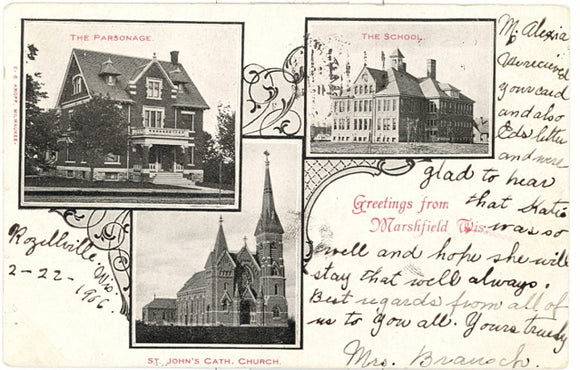 THE PARSONAGE.
THE SCHOOL.
E. C. KROPP, MILWAUKEE.
Greetings from
Marshfield Wis.
ST. JOHN'S CATH. CHURCH.
Rozellville, Wis.
2-22-1906.
Mr Alexia
We recieved
your card
and also
Eds letter
and were
glad to hear
that Katie
was so
well and hope she will
stay that well always.
Best regards from all of
us to you all. Yours truely
Mrs. Branoch.